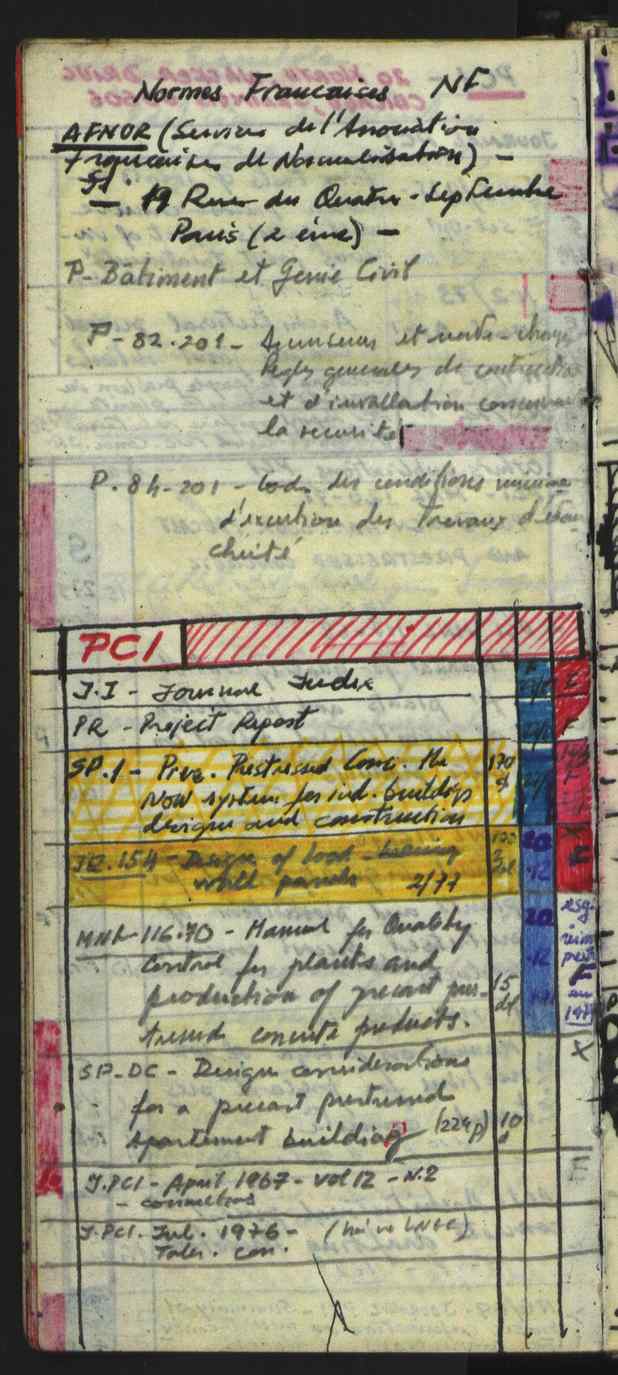 Normes Francaises NF
AFNOR (Services de l'Association
Francaises de Normalisation) -
- 19 Rue du Quatre-Septembre
Paris (2 ème) -
P- Bâtiment et Genie Civil
P-82.201- Ascenseurs et monte-charge
Regles generales de construction
et d'installation concernant
la securité
P. 84-201 - des conditions
d'execution des Travaux d'étan
cheité
PCI
J.I - Journal Index
PR - Project Report
SP.1 - Prec. Prestressed Conc. The
NOW system for ind. buildings
designs and construction
170
JR.154 - Design of load-bearing
wall panels 2/77
20
12
MNL-116.70 - Manual for Quality
Control for plants and
production of precast pres-
tressed concrete products.
15
dl
20
12
SP-DC - Design considerations
for a precast prestressed
apartment building (224p)
10
X
J.PCI - April 1967 - vol 12 - N.2
- connections
E
J.PCI. Jul. 1976 - (há no LNEC)
Toler. con.